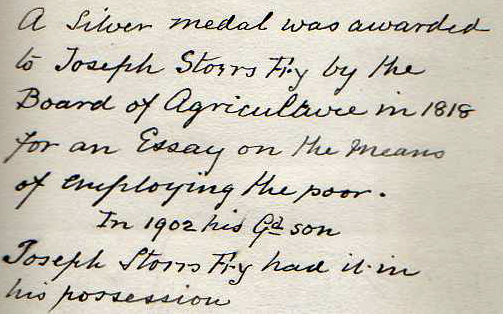 A Silver medal was awarded
to Joseph Storrs Fry by the
Board of Agriculture in 1818
for an Essay on the means
of employing the poor.
In 1902 his Gd son
Joseph Storrs Fry had it in
his possession